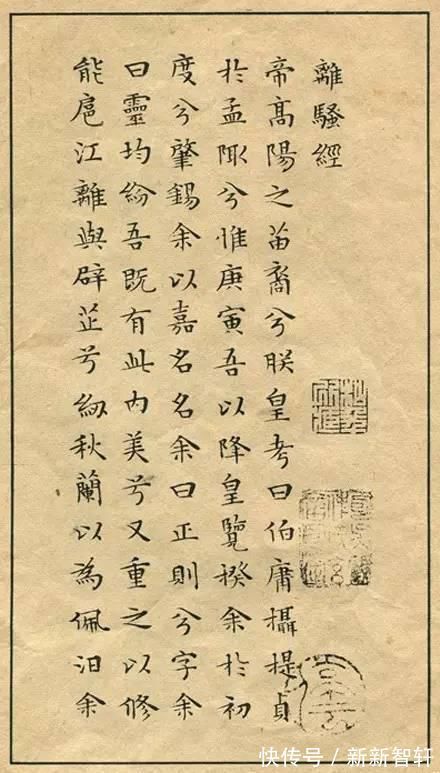 離騷經
帝髙陽之苗裔兮朕皇考曰伯庸攝提貞
於孟陬兮惟庚寅吾以降皇覽揆余於初
度兮肇錫余以嘉名名余曰正則兮字余
曰靈均紛吾既有此内美兮又重之以修
能扈江離與辟芷兮紉秋蘭以為佩汨余
快传号 / 新新智轩